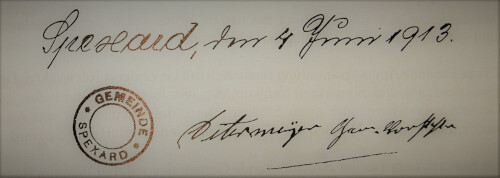 Spexard, den 4 Juni 1913.
GEMEINDE
SPEXARD
Determeijer Gem. Vorsteher